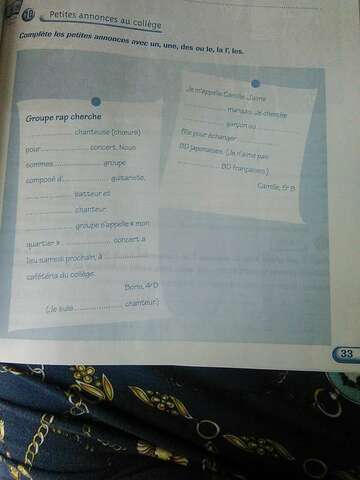 Petites annonces au collège
Complète les petites annonces avec un, une, des ou le, la l', les.
Groupe rap cherche
.................. chanteuse (chœurs)
pour .................. concert. Nous
sommes .................. groupe
composé d'.................. guitariste,
.................. batteur et
.................. chanteur.
.................. groupe s'appelle « mon
quartier » .................. concert a
lieu samedi prochain, à ..................
cafétéria du collège.
Boris, 4e D
(Je suis .................. chanteur.)
Je m'appelle Camille. J'aime
.................. mangas. Je cherche
.................. garçon ou ..................
fille pour échanger ..................
BD japonaises. (Je n'aime pas
.................. BD françaises.)
Camille, 5e B
33